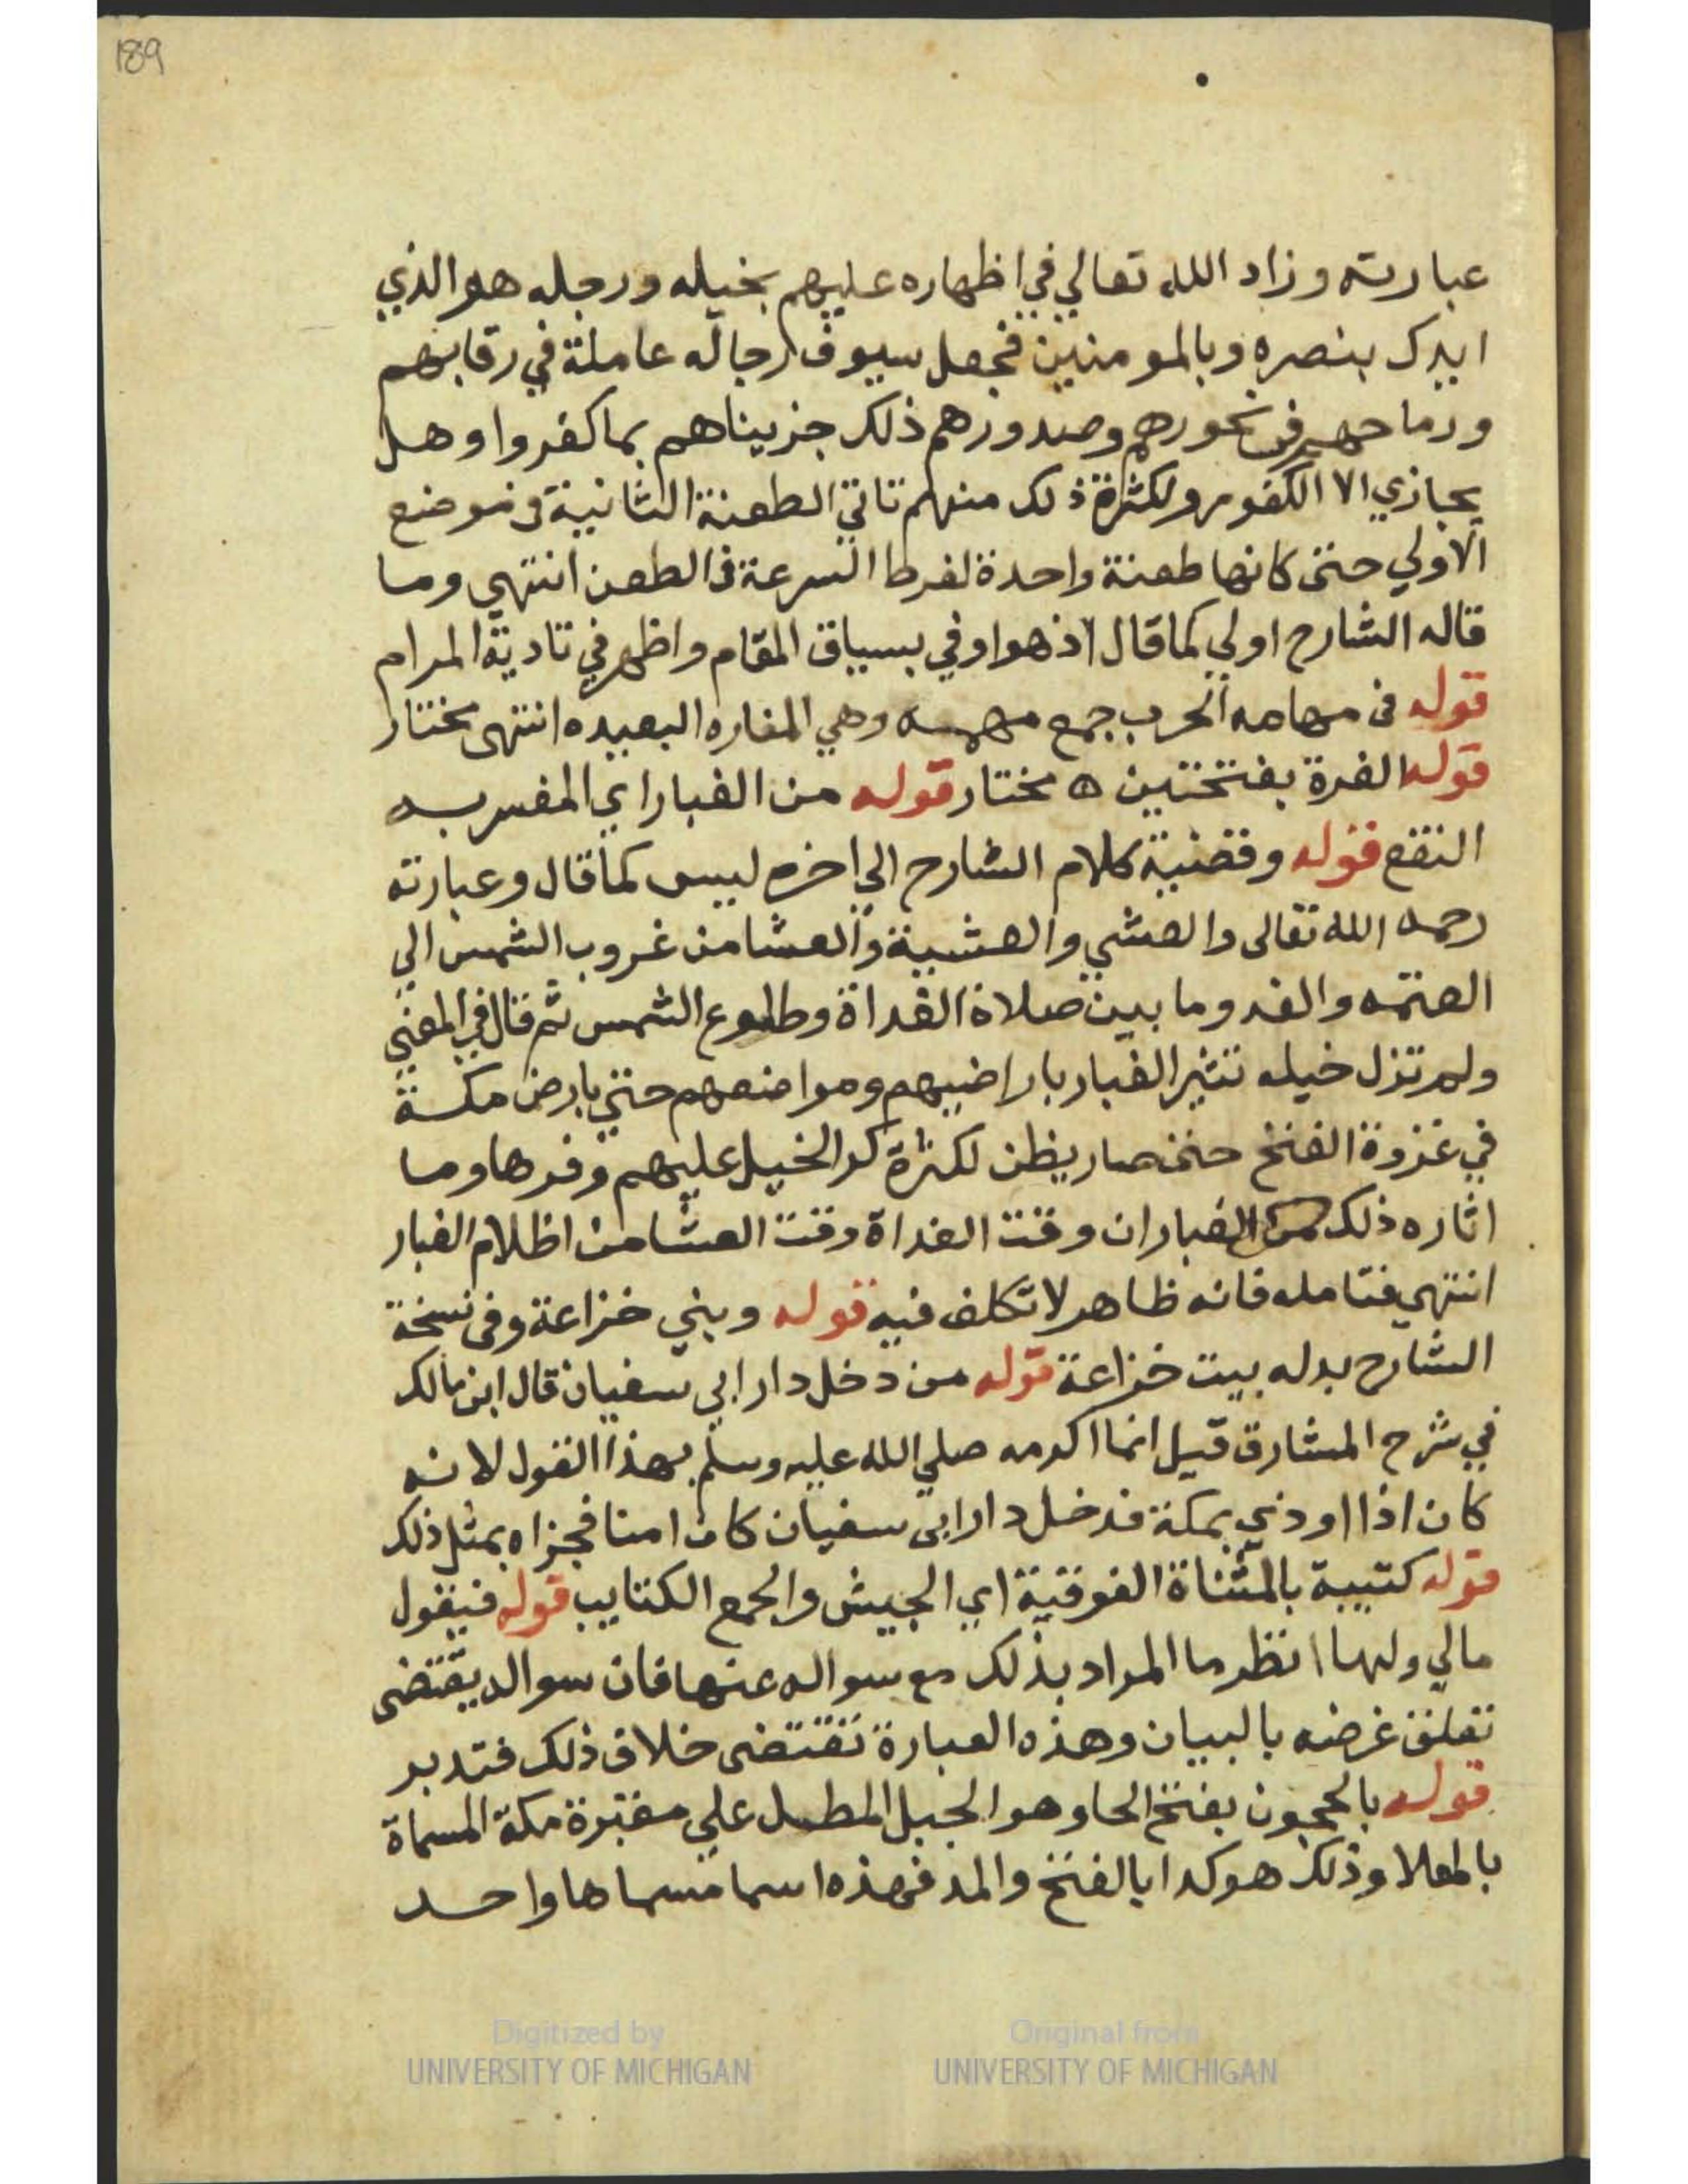 189
عبارته وزاد الله تعالي في اظهاره عليهم بخيله ورجله هو الذي
ايدك بنصره وبالمومنين فجعل سيوف رجاله عاملة في رقابهم
ورماحهم في نحورهم وصدورهم ذلك جزيناهم بما كفروا وهل
يجازي الا الكفور ولكثرة ذلك منهم تاتي الطعنة الثانية في موضع
الاولي حتى كانها طعنة واحدة لفرط السرعة في الطعن انتهي وما
قاله الشارح اولي كما قال اذ هو اوفي بسياق المقام واظهر في تادية المرام
قوله في مهامه الحرب جمع مهمه وهي المفازه البعيده انتهى مختار
قوله الغبرة بفتحتين ه مختار قوله من الغبار اي المفسر به
النقع قوله وقضية كلام الشارح الي اخره ليس كما قال وعبارته
رحمه الله تعالى والعشي والعشية والعشا من غروب الشمس الي
العتمه والغدو ما بين صلاة الغداة وطلوع الشمس ثم قال في المعني
ولم تزل خيله تثير الغبار باراضيهم ومواضعهم حتي بارض مكة
في غزوة الفتح حتى صار يظن لكثرة كر الخيل عليهم وفرها وما
اثاره ذلك من الغبار ان وقت الغداة وقت العشا من اظلام الغبار
انتهي فتامله فانه ظاهر لا تكلف فيه قوله وبني خزاعة وفى نسخة
الشارح بدله بيت خزاعة قوله من دخل دار ابي سفيان قال ابن مالك
في شرح المشارق قيل انما اكرمه صلي الله عليه وسلم بهذا القول لانه
كان اذا اوذي بمكة فدخل دار ابى سفيان كان امنا فجزاه بمثل ذلك
قوله كتيبة بالمثناة الفوقية اي الجيش والجمع الكتايب قوله فيقول
مالي ولها انظر ما المراد بذلك مع سواله عنها فان سواله يقتضى
تعلق غرضه بالبيان وهذه العبارة تقتضى خلاف ذلك فتدبر
قوله بالحجون بفتح الحا وهو الجبل المطل علي مقبرة مكة المسماة
بالمعلا وذلك هو كدا بالفتح والمد فهذه اسما مسماها واحد
Digitized by
UNIVERSITY OF MICHIGAN
Original from
UNIVERSITY OF MICHIGAN